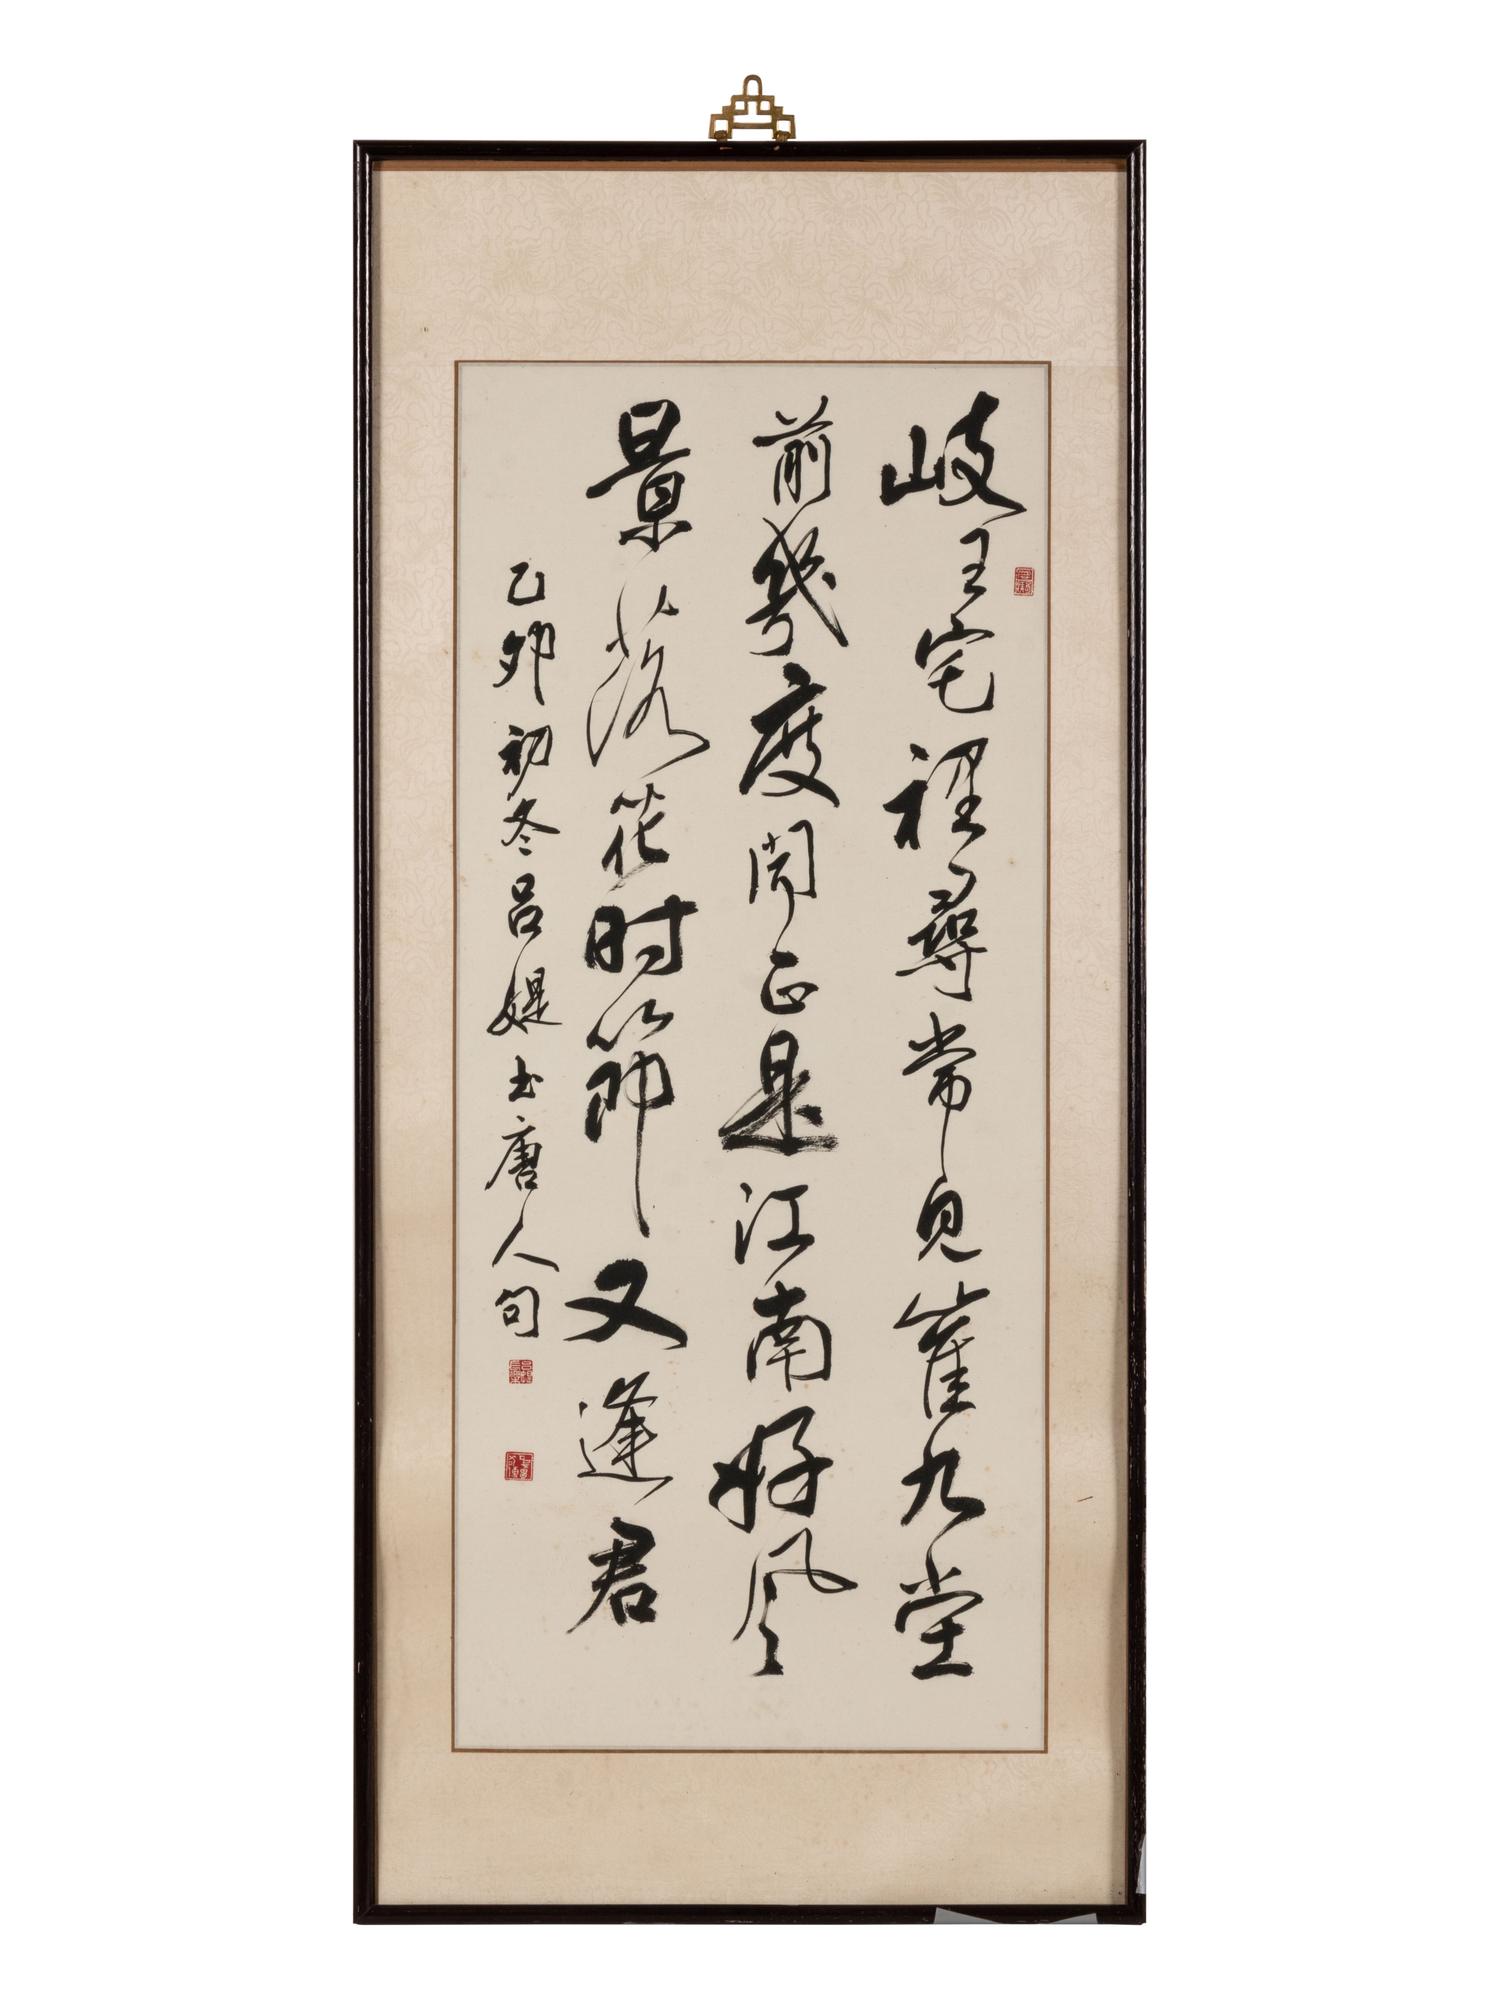 岐王宅裡尋常見崔九堂
前幾度聞正是江南好風
景落花时節又逢君
乙卯初冬吕媞书唐人句